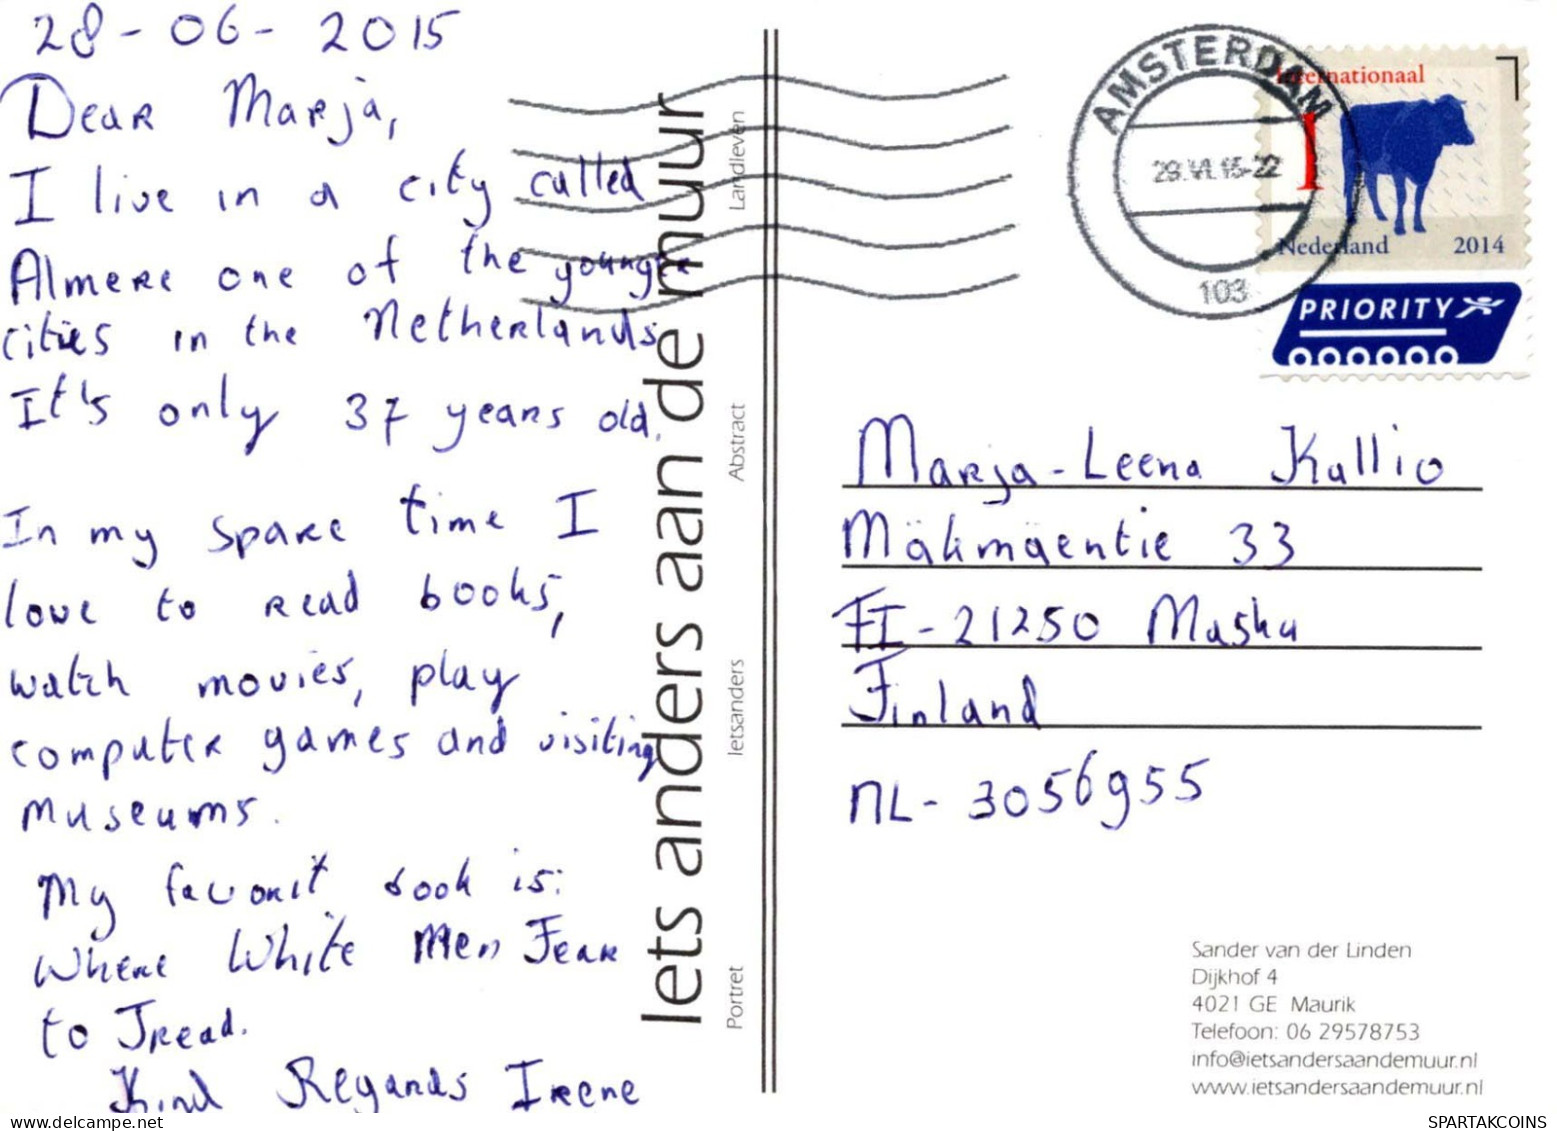 28-06-2015
Dear Marja,
I live in a city called
Almere one of the younger
cities in the Netherlands
It's only 37 years old.
In my spare time I
love to read books,
watch movies, play
computer games and visiting
museums.
My favorit book is:
Where White Men Fear
to Tread.
Kind Regards Irene
Iets anders aan de muur
Landleven
Abstract
Ietsanders
Portret
AMSTERDAM
29.VI.15-22
103
Internationaal
1
Nederland 2014
PRIORITY
Marja-Leena Kallio
Mäkmäentie 33
FI-21250 Masku
Finland
NL-3056955
Sander van der Linden
Dijkhof 4
4021 GE Maurik
Telefoon: 06 29578753
info@ietsandersaandemuur.nl
www.ietsandersaandemuur.nl
www.delcampe.net
SPARTAKCOINS